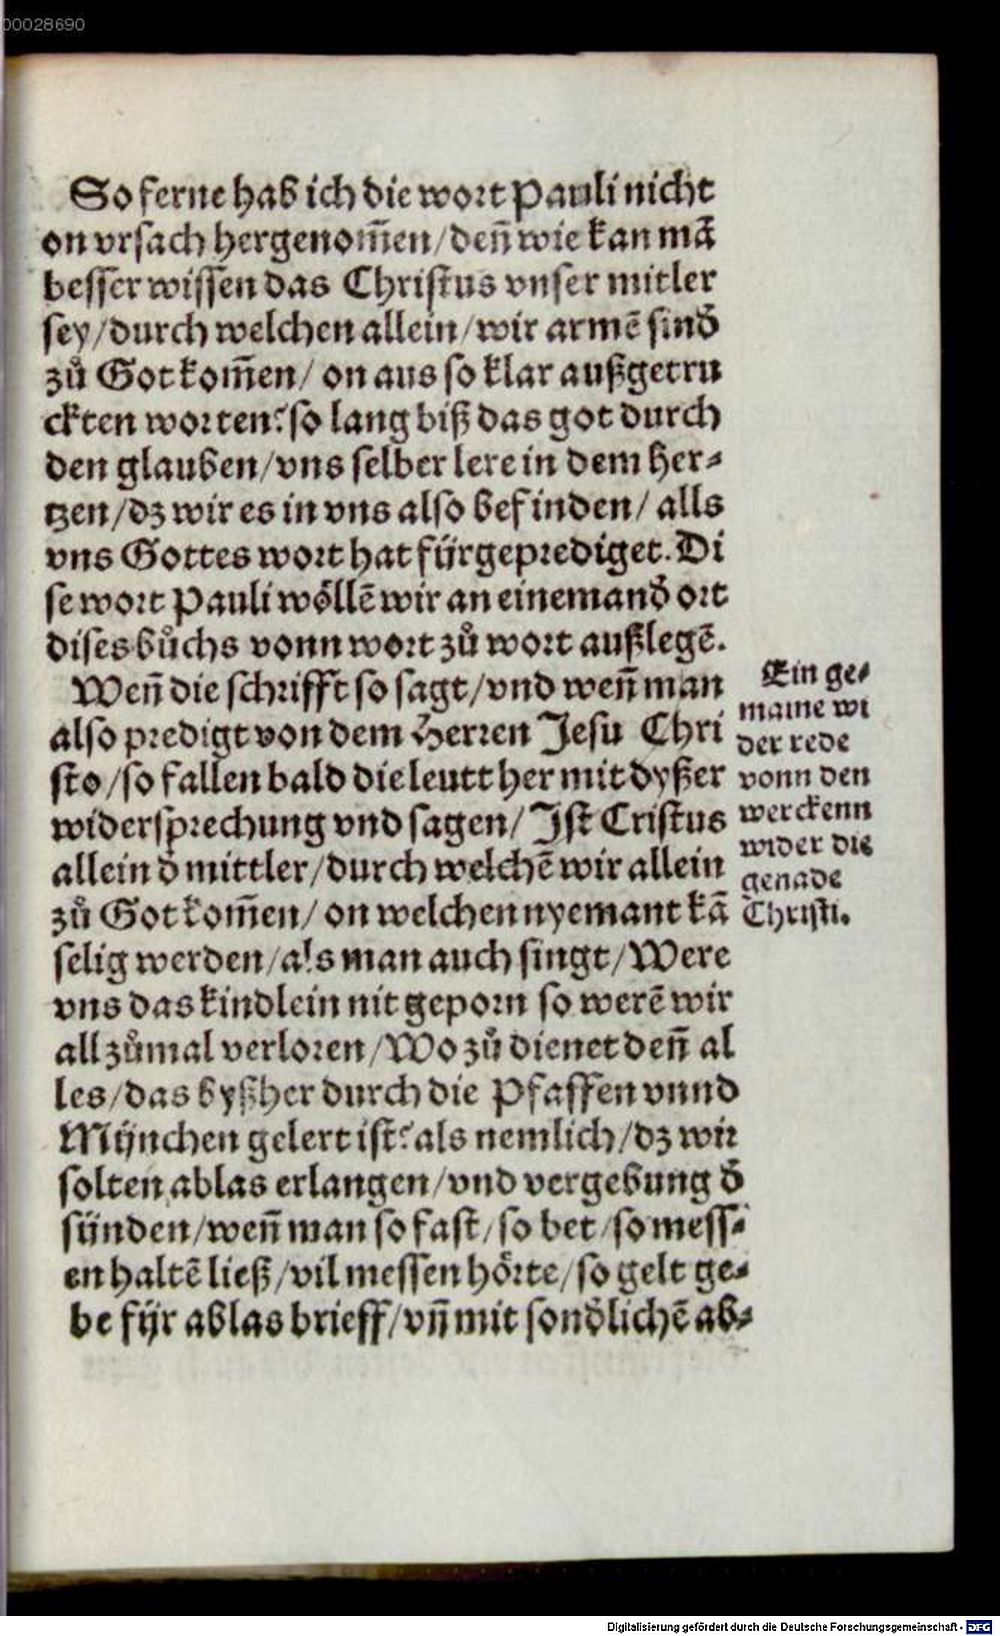 00028690
So ferne hab ich die wort Pauli nicht
on vrsach hergenom̃en/den̄ wie kan mā
besser wissen das Christus vnser mitler
sey/durch welchen allein/wir armē sind
zů Got kom̃en/ on aus so klar außgetru
ckten worten? so lang biß das got durch
den glauben/vns selber lere in dem her⸗
tzen/dz wir es in vns also befinden/ alls
vns Gottes wort hat fürgeprediget. Di
se wort Pauli wöllē wir an einem and̄ ort
dises bůchs vonn wort zů wort außlegē.
Wen̄ die schrifft so sagt/vnd wen̄ man
also predigt von dem Herren Jesu Chri
sto/so fallen bald die leutt her mit dyßer
widersprechung vnd sagen/ Ist Cristus
allein d̄ mittler/durch welchē wir allein
zů Got kom̃en/ on welchen nyemant kā
selig werden/als man auch singt/Were
vns das kindlein nit geporn so werē wir
all zůmal verloren/Wo zů dienet den̄ al
les/das byßher durch die Pfaffen vnnd
München gelert ist? als nemlich/dz wir
solten ablas erlangen/vnd vergebung d̄
sünden/wen̄ man so fast/so bet/so mess⸗
en haltē ließ/vil messen hörte/so gelt ge⸗
be für ablas brieff/vn̄ mit sond̄lichē ab⸗
Ein ge⸗
maine wi
der rede
vonn den
werckenn
wider die
genade
Christi.
Digitalisierung gefördert durch die Deutsche Forschungsgemeinschaft - DFG